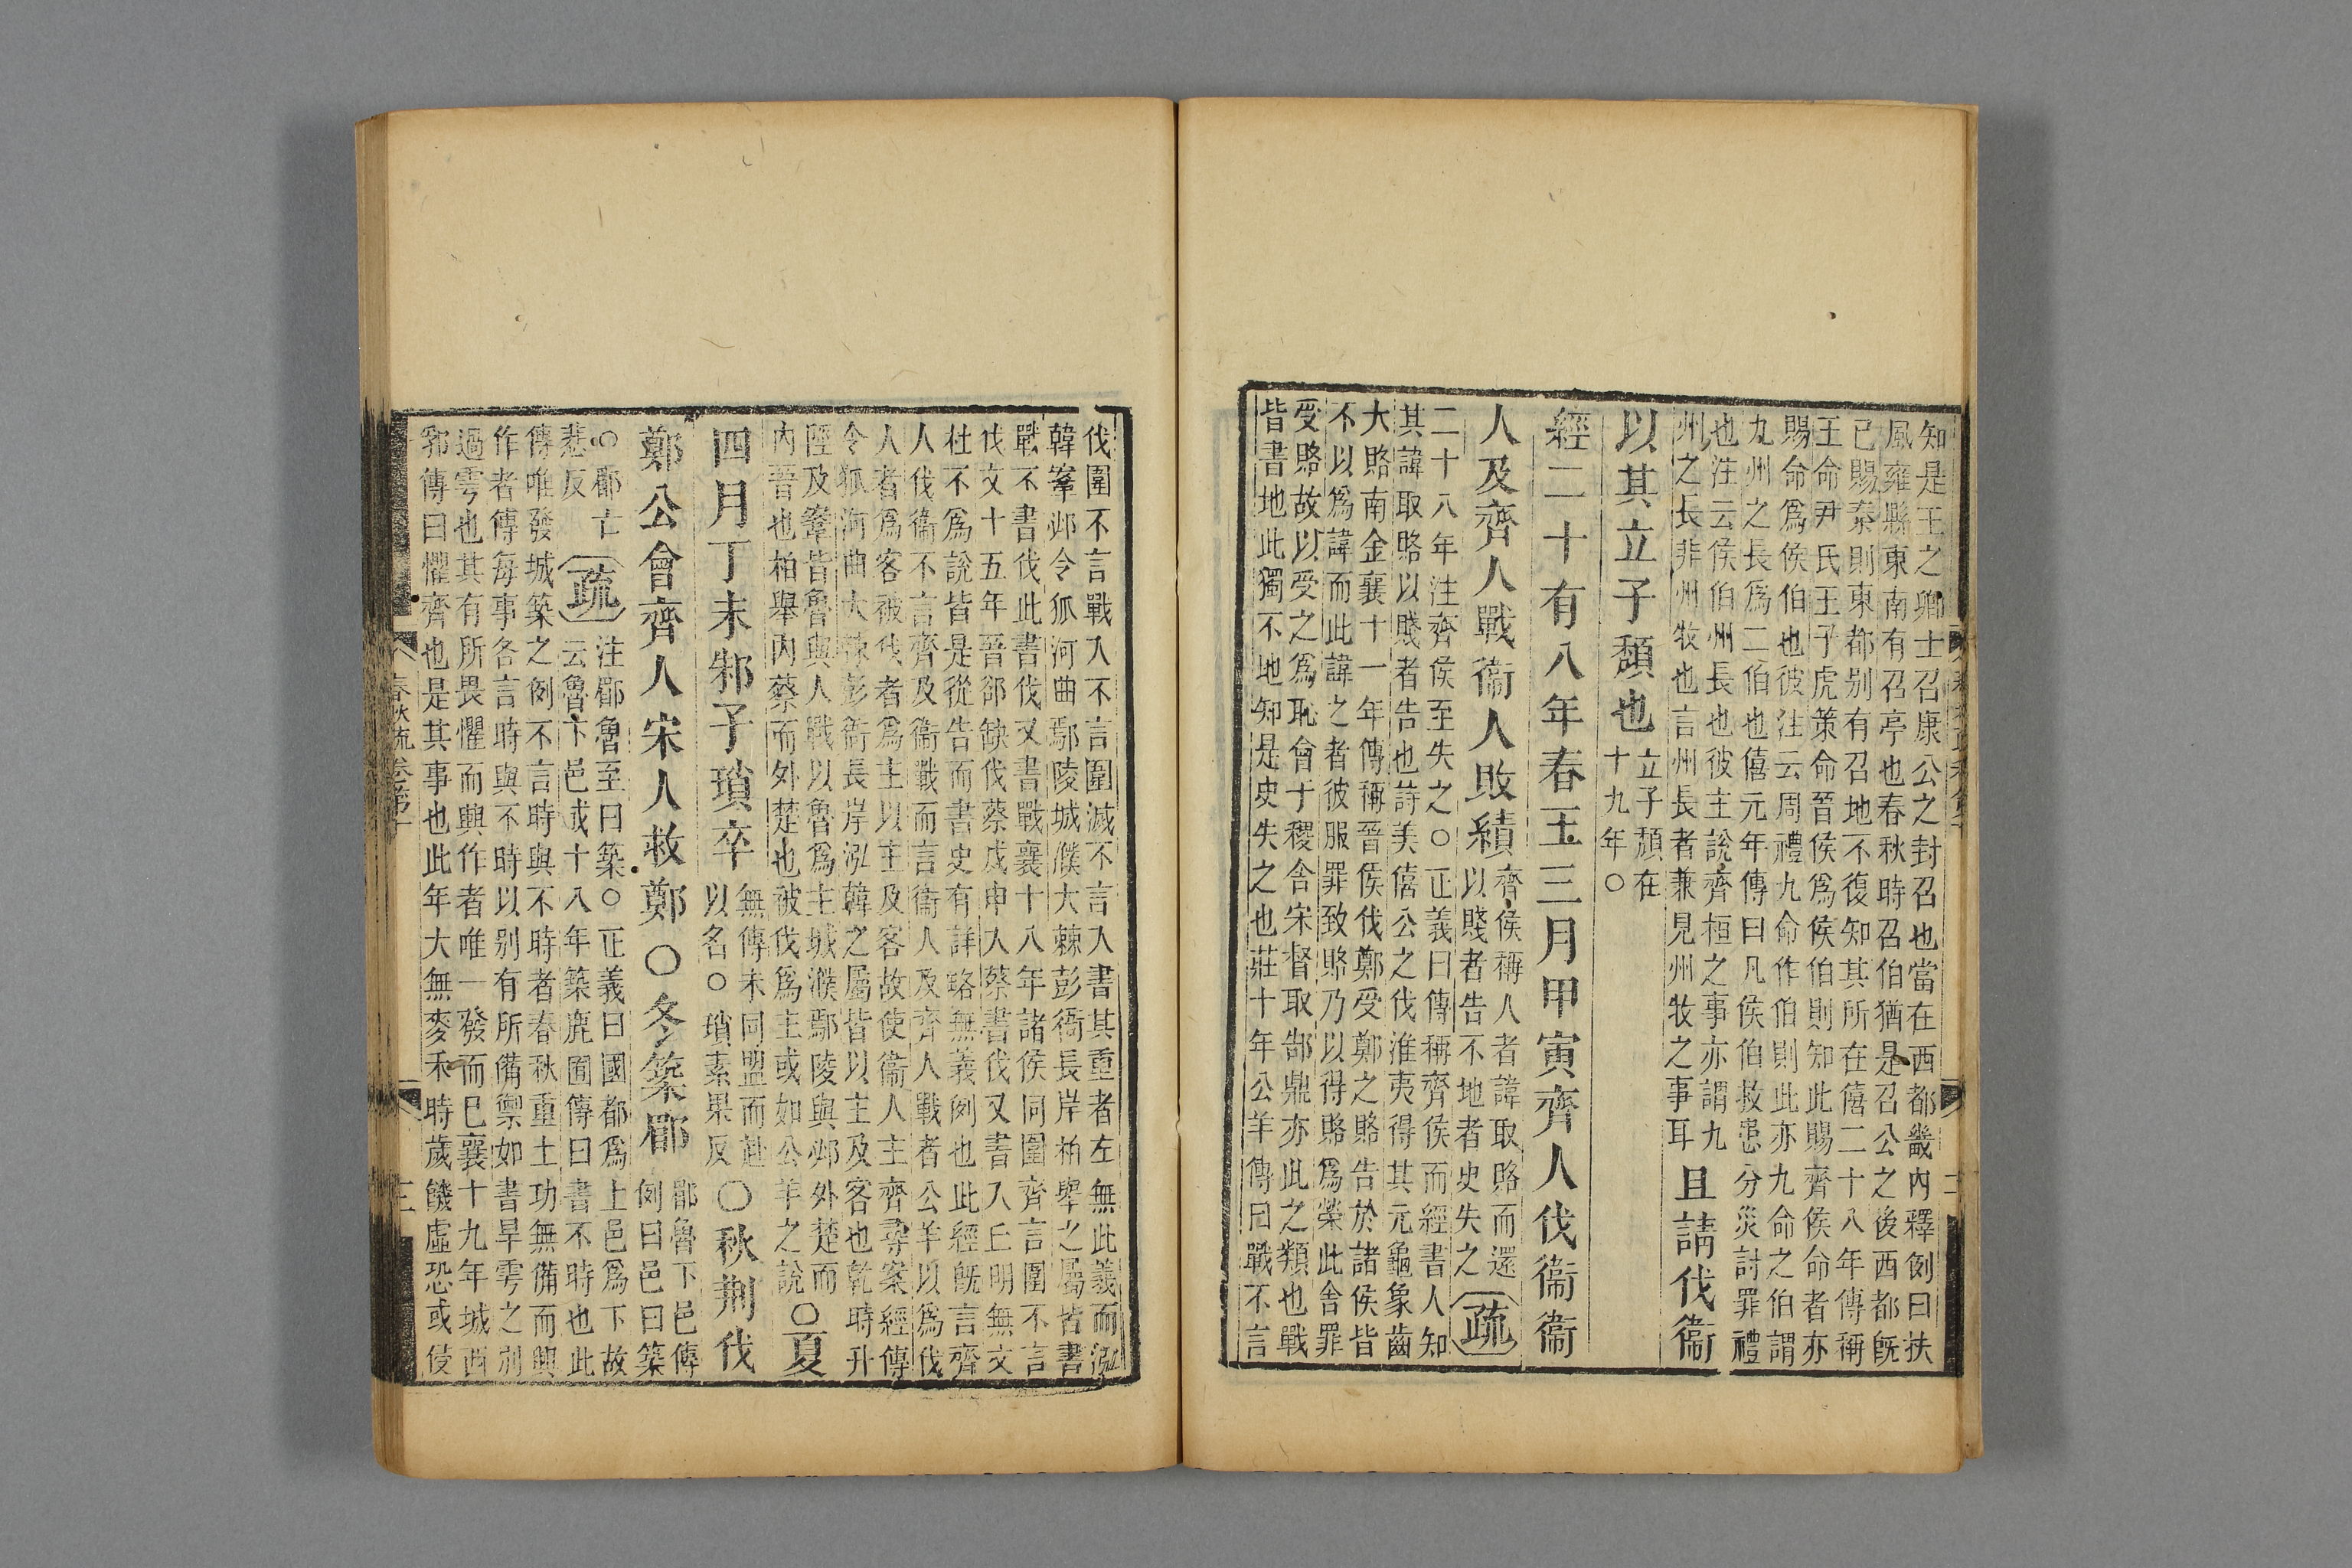 知是王之卿士召康公之封召也當在西都畿內釋例曰扶
風雍縣東南有召亭也春秋時召伯猶是召公之後西都既
已賜秦則東都別有召地不復知其所在僖二十八年傳稱
王命尹氏王子虎策命晉侯為侯伯則知此賜齊侯命者亦
賜命為侯伯也彼注云周禮九命作伯則此亦九命之伯謂
九州之長為二伯也僖元年傳曰凡侯伯救患分災討罪禮
也注云侯伯州長也彼主說齊桓之事亦謂九
州之長非州牧也言州長者兼見州牧之事耳
且請伐衞
以其立子頹也
立子頹在
十九年○
經二十有八年春王三月甲寅齊人伐衞衞
人及齊人戰衞人敗績
齊侯稱人者諱取賂而還
以賤者告不地者史失之
疏
二十八年注齊侯至失之○正義曰傳稱齊侯而經書人知
其諱取賂以賤者告也詩美僖公之伐淮夷得其元龜象齒
大賂南金襄十一年傳稱晉侯伐鄭受鄭之賂告於諸侯皆
不以為諱而此諱之者彼服罪致賂乃以得賂為榮此舍罪
受賂故以受之為恥會于稷舍宋督取郜鼎亦此之類也戰
皆書地此獨不地知是史失之也莊十年公羊傳曰戰不言
伐圍不言戰入不言圍滅不言入書其重者左無此義而泓
韓鞌邲令狐河曲鄢陵城濮大棘彭衙長岸柏舉之屬皆書
戰不書伐此書伐又書戰襄十八年諸侯同圍齊言圍不言
伐文十五年晉郤缺伐蔡戊申入蔡書伐又書入丘明無文
杜不為說皆是從告而書史有詳略無義例也此經既言齊
人伐衞不言齊及衞戰而言衞人及齊人戰者公羊以為伐
人者為客被伐者為主以主及客故使衞人主齊尋案經傳
令狐河曲大棘彭衙長岸泓韓之屬皆以主及客也乾時升
陘及鞌皆魯與人戰以魯為主城濮鄢陵與邲外楚而
內晉也柏舉內蔡而外楚也被伐為主或如公羊之說
○夏
四月丁未邾子瑣卒
無傳未同盟而赴
以名○瑣素果反
○秋荊伐
鄭公會齊人宋人救鄭○冬築郿
郿魯下邑傳
例曰邑曰築
○郿亡
悲反
疏
注郿魯至曰築○正義曰國都為上邑為下故
云魯下邑成十八年築鹿囿傳曰書不時也此
傳唯發城築之例不言時與不時者春秋重土功無備而興
作者傳每事各言時與不時以別有所備禦如書旱雩之別
過雩也其有所畏懼而興作者唯一發而已襄十九年城西
郛傳曰懼齊也是其事也此年大無麥禾時歲饑虛恐或使
春秋疏卷第十
三